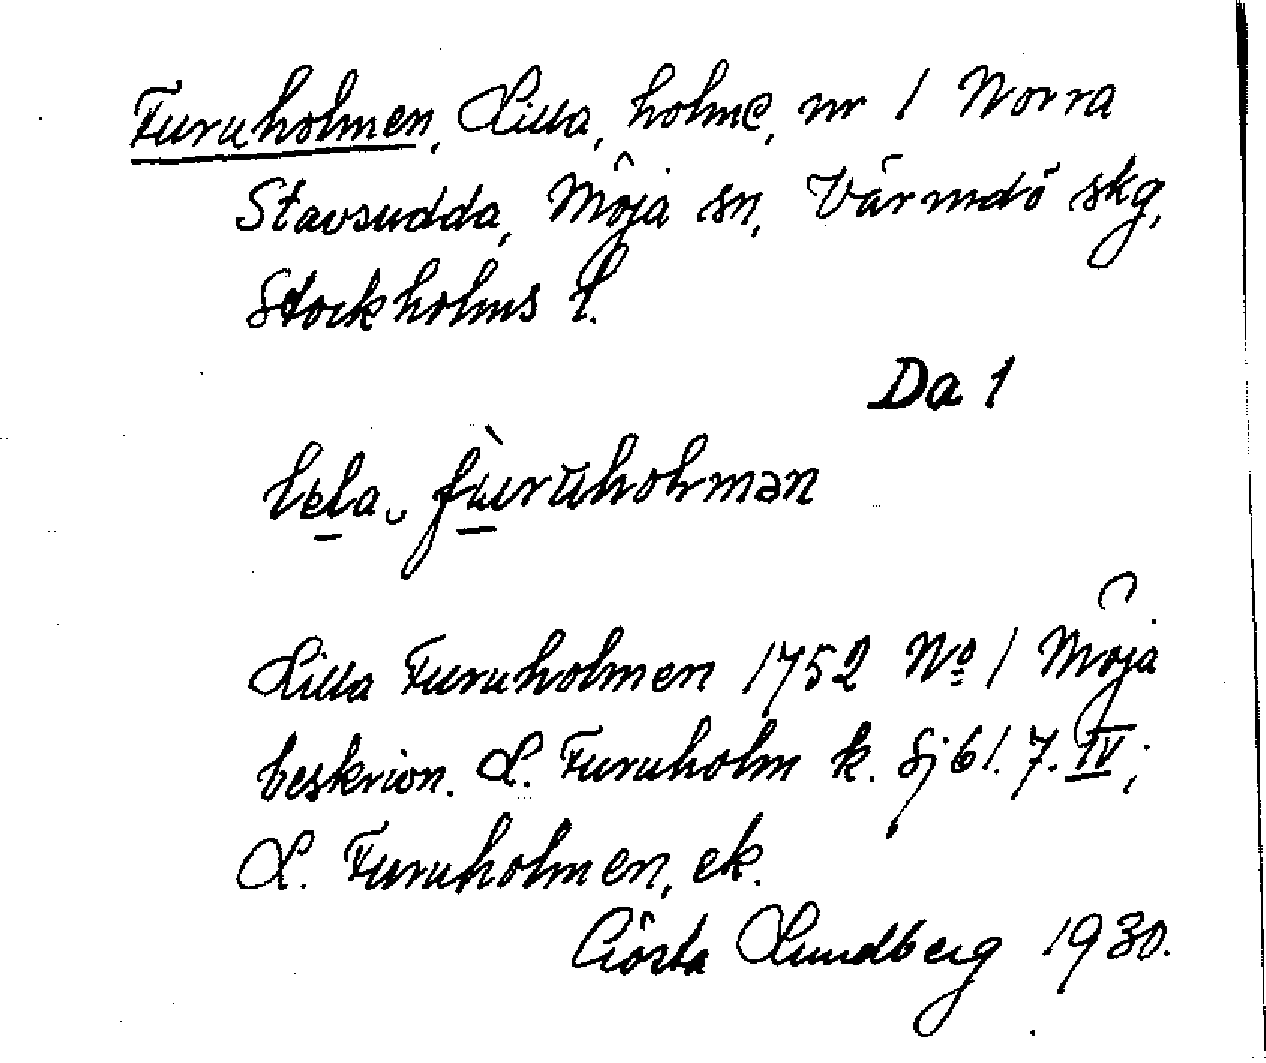 Furuholmen, Lilla, holme, nr 1 Norra
Stavsudda, Möja sn, Värmdö skg,
Stockholms l.
Da 1
Lilla Furuholmen 1752 No 1 Möja
beskrivn. L. Furuholm k. Sjöl. 7. IV;
L. Furuholmen, ek.
Gösta Lundberg 1930.